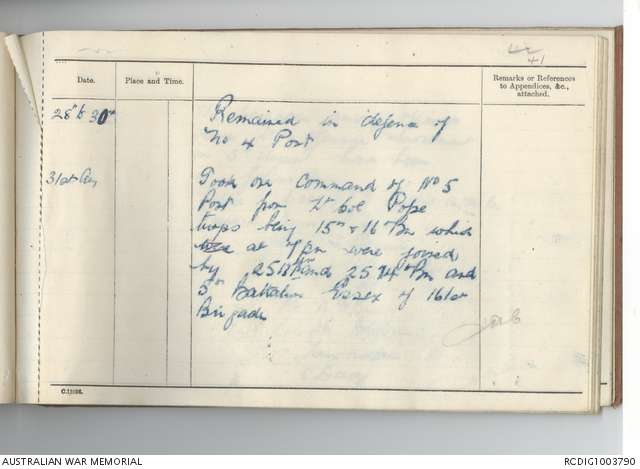 41
Date.
Place and Time.
Remarks or References
to Appendices, &c.,
attached.
28th to 30th
Remained in defence of
No 4 Post
31st Aug
Took over Command of No 5
Post from Lt Col Pope
troops being 15th & 16th Bn which
at 7 pm were joined
by and Bn and
5th Battalion Essex of 161st
Brigade
C.11896.
AUSTRALIAN WAR MEMORIAL
RCDIG1003790